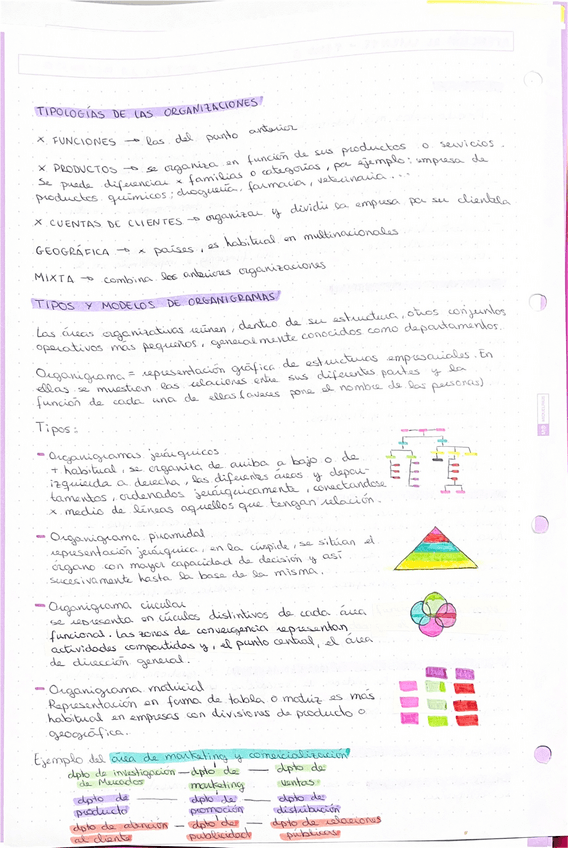 TIPOLOGÍAS DE LAS ORGANIZACIONES
x FUNCIONES → las del punto anterior
x PRODUCTOS → se organiza en función de sus productos o servicios.
Se puede diferenciar x familias o categorías, por ejemplo: empresa de
productos químicos; droguería, farmacia, veterinaria...
x CUENTAS DE CLIENTES → organizar y dividir la empresa por su clientela
GEOGRÁFICA → x países, es habitual en multinacionales
MIXTA → combina las anteriores organizaciones
TIPOS Y MODELOS DE ORGANIGRAMAS
Las áreas organizativas reúnen, dentro de su estructura, otros conjuntos
operativos más pequeños, generalmente conocidos como departamentos.
Organigrama = representación gráfica de estructuras empresariales. En
ellas se muestran las relaciones entre sus diferentes partes y la
función de cada una de ellas (a veces pone el nombre de las personas)
Tipos:
- Organigramas jerárquicos
+ habitual, se organiza de arriba a bajo o de
izquierda a derecha, las diferentes áreas y depar-
tamentos, ordenados jerárquicamente, conectandose
x medio de líneas aquellos que tengan relación.
- Organigrama piramidal
representación jerárquica, en la cúspide, se sitúan el
órgano con mayor capacidad de decisión y así
sucesivamente hasta la base de la misma.
- Organigrama circular
se representa en círculos distintivos de cada área
funcional. Las zonas de convergencia representan
actividades compartidas y, el punto central, el área
de dirección general.
- Organigrama matricial
Representación en forma de tabla o matriz es más
habitual en empresas con divisiones de producto o
geográfica.
Ejemplo del área de marketing y comercialización
dpto de investigación — dpto de — dpto de
de Mercados marketing ventas
dpto de — dpto de — dpto de
producto promoción distribución
dpto de atención — dpto de — dpto de relaciones
al cliente publicidad públicas